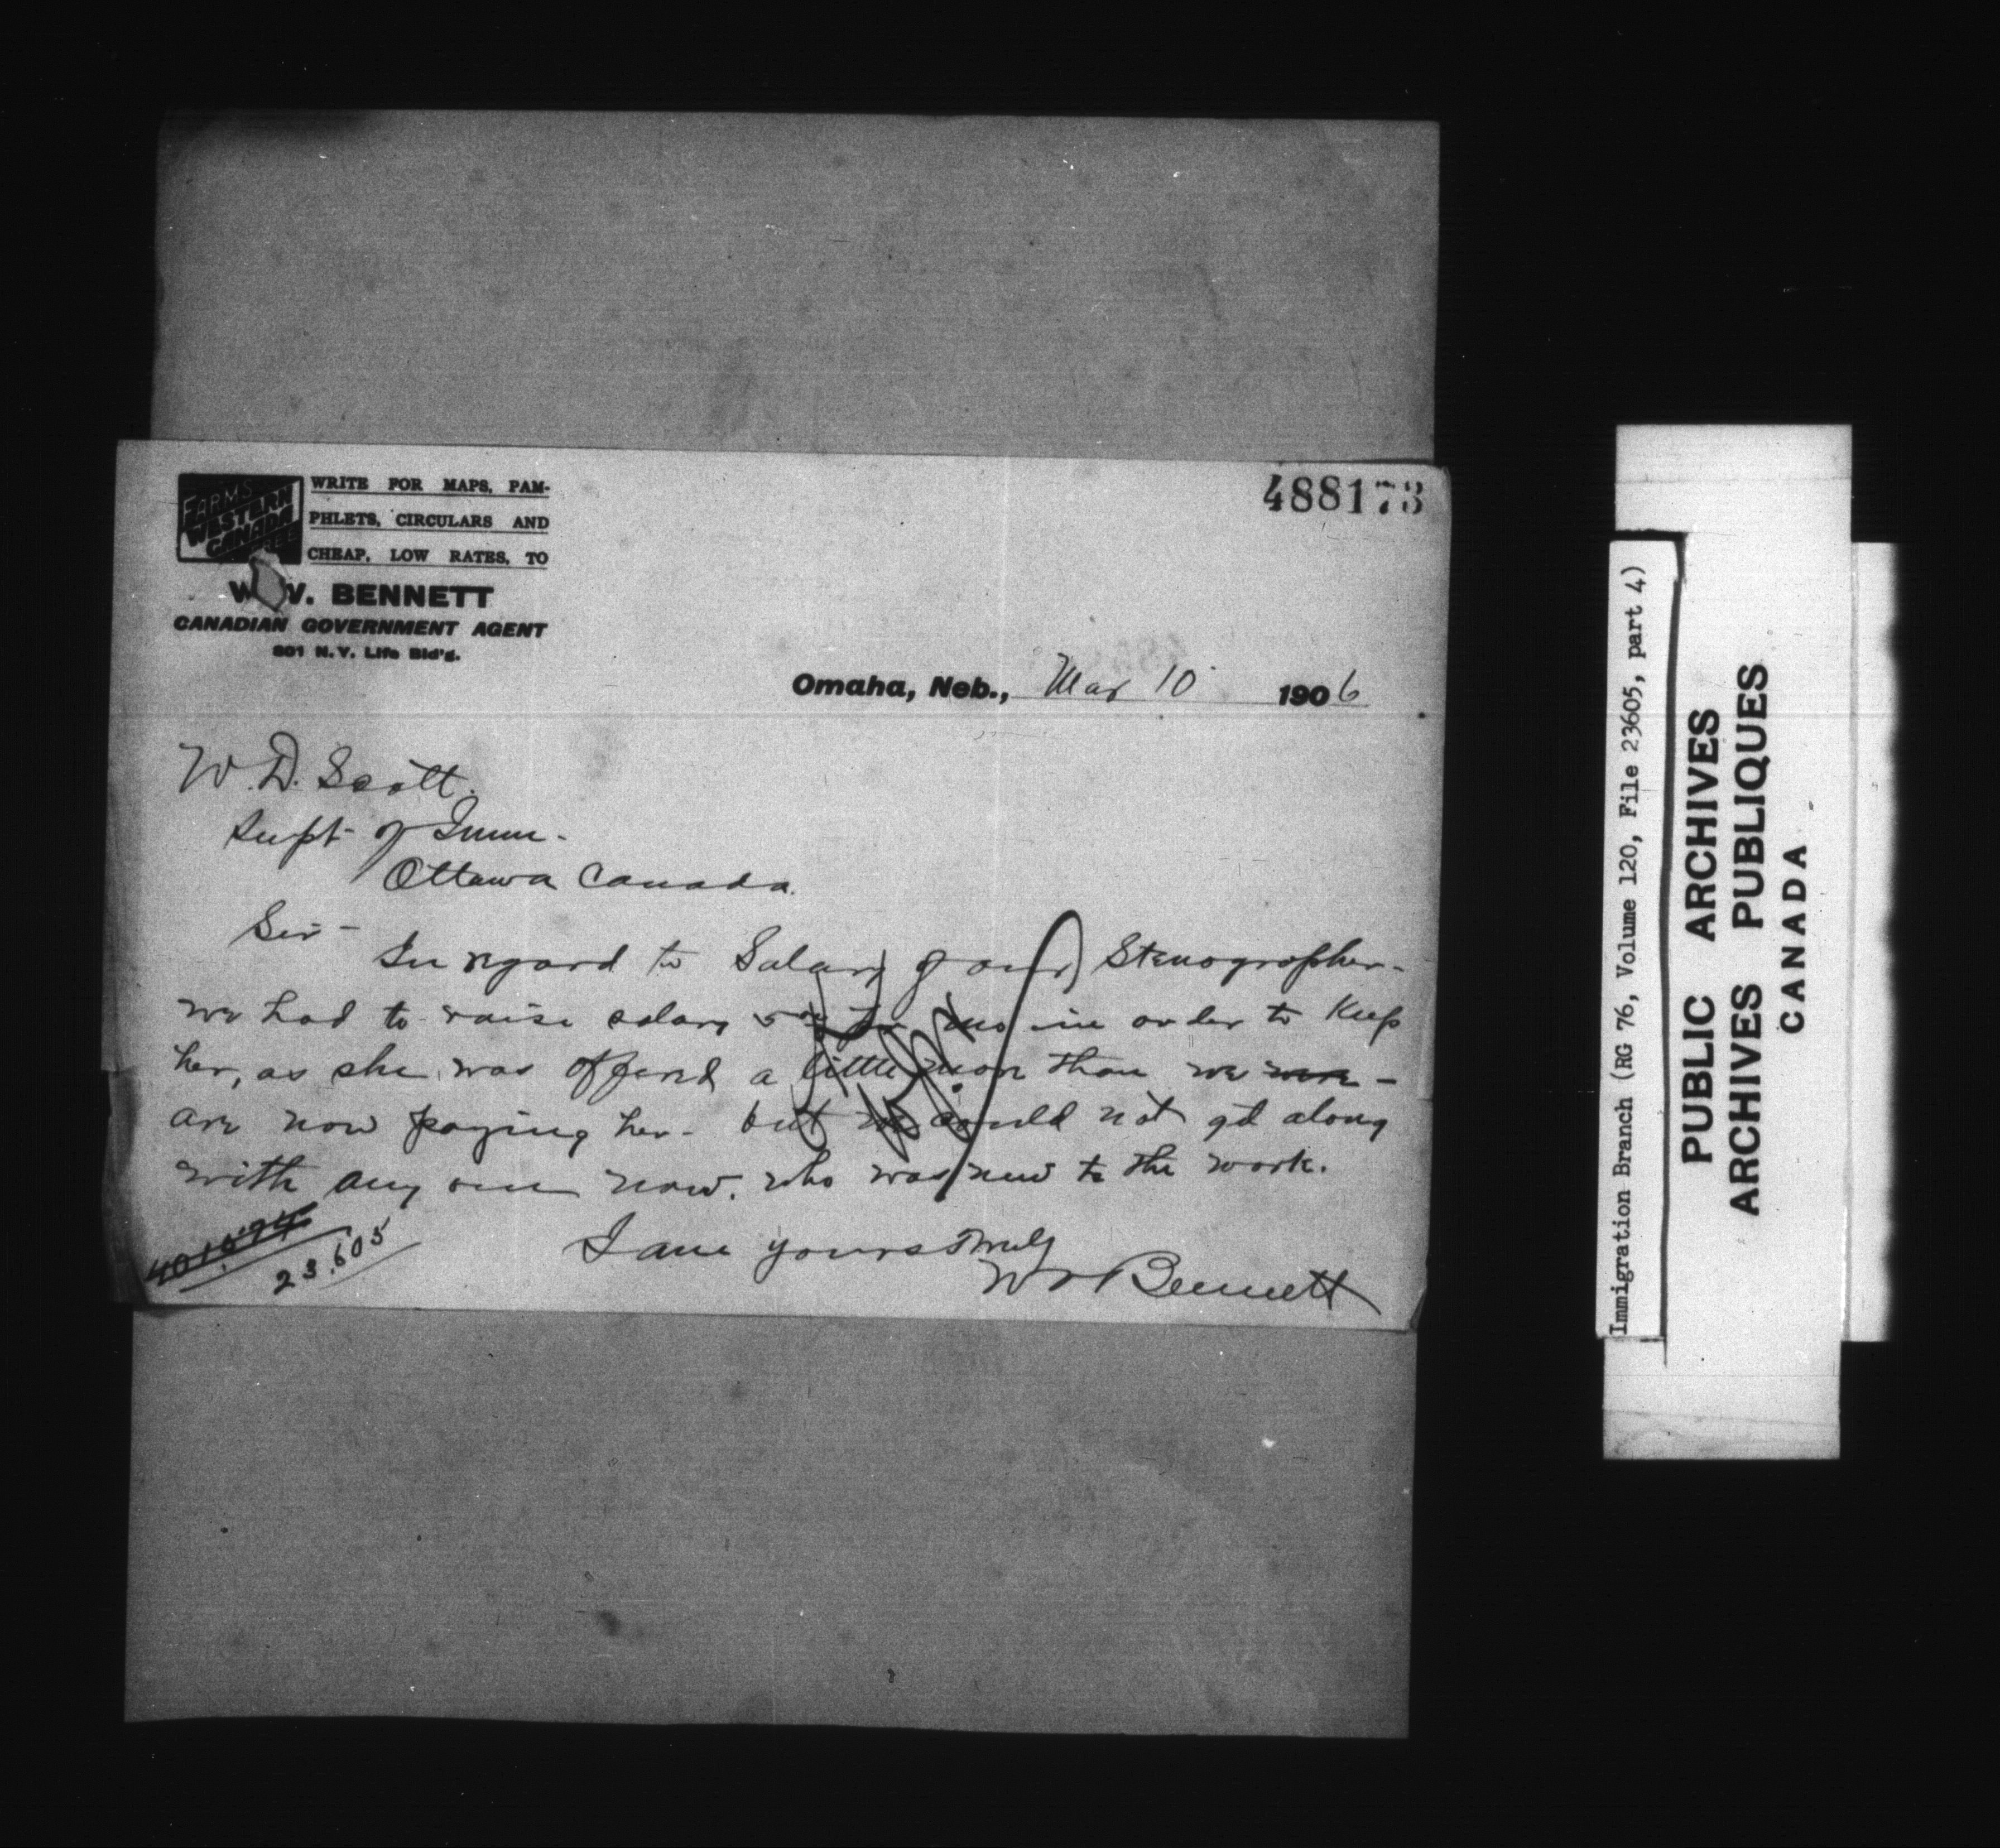 488173
FARMS
WESTERN
CANADA
FREE
WRITE FOR MAPS, PAM-
PHLETS, CIRCULARS AND
CHEAP, LOW RATES, TO
W. V. BENNETT
CANADIAN GOVERNMENT AGENT
801 N. Y. Life Bld'g.
Omaha, Neb., Mar 10 1906
W. D. Scott.
Supt- of Imm-
Ottawa Canada.
Sir -
In regard to Salary of our Stenographer-
we had to raise salary 5 00 per mo in order to keep
her, as she was offered a little more than we were -
are now paying her- but we could not get along
with any one now. who was new to the work.
I am yours truly
W V Bennett
23.605
Immigration Branch (RG 76, Volume 120, File 23605, part 4)
PUBLIC ARCHIVES
ARCHIVES PUBLIQUES
CANADA